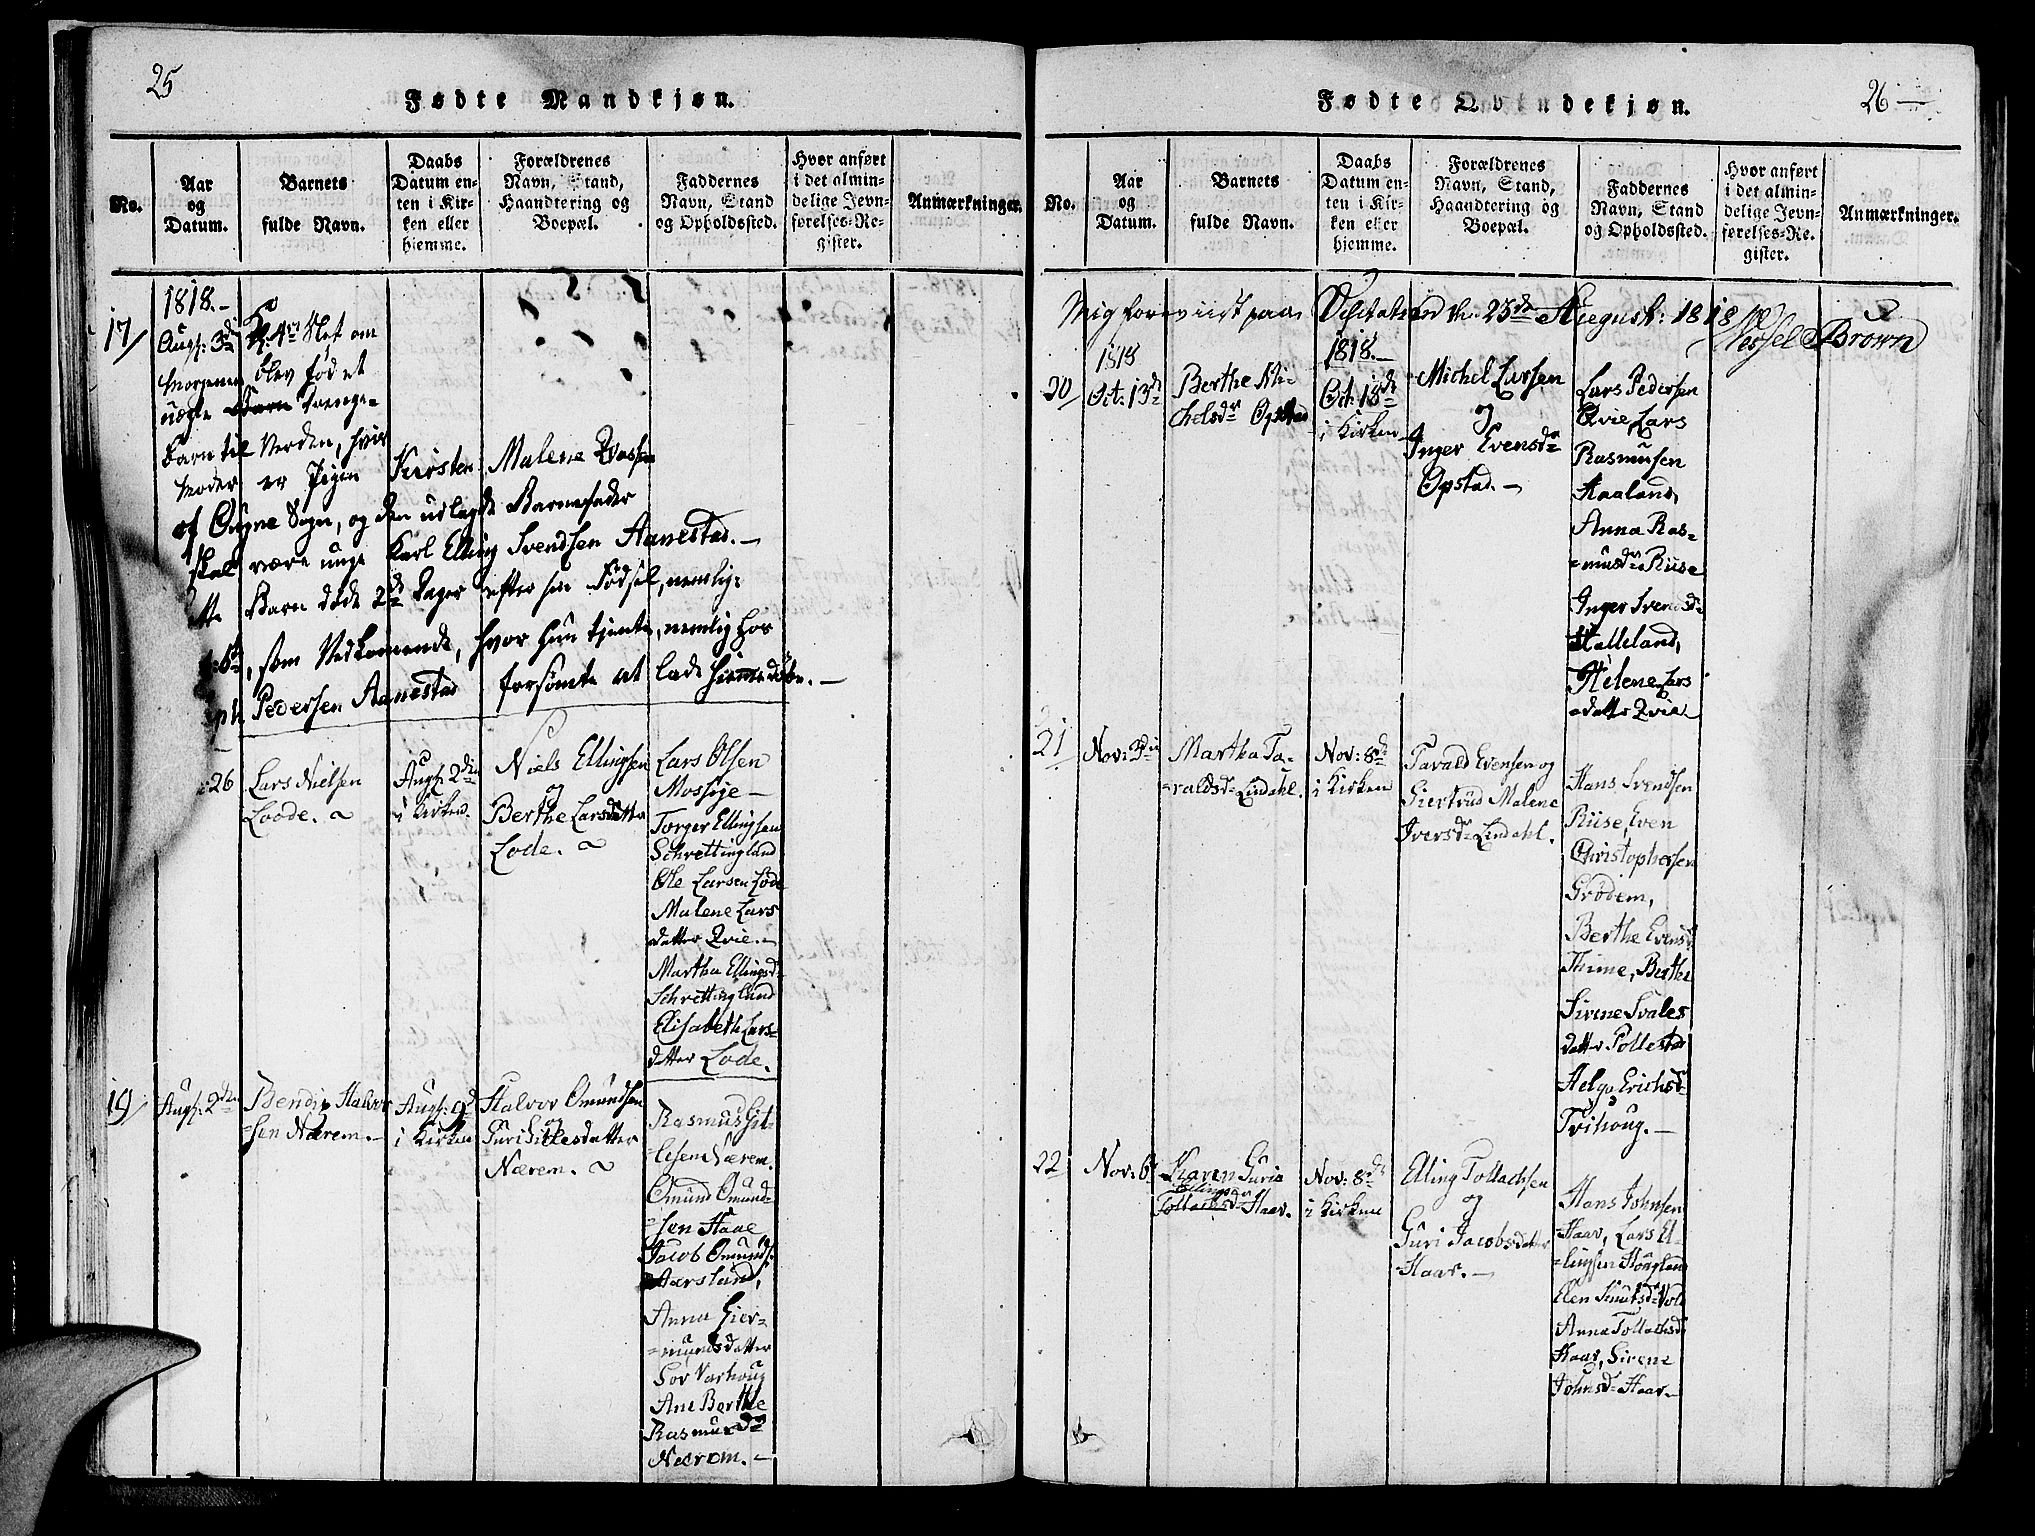 25
Fødte Mandkjøn.
No.
Aar
og
Datum.
Barnets
fulde Navn.
Daabs
Datum en-
ten i Kir-
ken eller
hjemme.
Forældrenes
Navn, Stand,
Haandtering og
Boepæl.
Faddernes
Navn, Stand
og Opholdssted.
Hvor anført
i det almin-
delige Jevn-
førelses-Re-
gister.
Anmærkninger.
17/
1818.-
Aug: 3de Kl: 4re Slet om
Morgenen blev født et
uægte Barn Drenge-
barn til Verden, hvis
Moder er Pigen Kirsten Malene
af Ougne Sogn, og den udlagde Barnefader
skal være unge Karl Elling Svendsen Aanestad.-
Barn døde 2de Dager efter sin Fødsel, nemlig:
6te, som Vedkomende, hvor hun tjente, nemlig hos
Pedersen Aanestad forsømte at lade hiemmedøbe.-
26
Lars Nielsen
Loode.
Aug: 2den
i Kirken.
Niels Ellingsen
og
Berthe Larsdatter
Lode.
Lars Olsen
Mossige-
Torger Ellingsen
Schrettingland
Ole Larsen Lode
Malene Lars
datter Qvie.-
Martha Ellingsd-
Schrettinglund
Elisabeth Lars-
datter Lode.
19/
Aug: 2den
Bendix Halvor
=sen Nærem.-
Aug: 9d
i Kirken
Halvor Omundsen
og
Guri Sillesdatter
Nærem.
Rasmus Git-
lesen Nærem.
Omund Omund-
=sen Haae
Jacob Omunds:
Aarsland,
Anna Gier-
=mundsdatter
Sør Varhoug
Ane Berthe
Rasmusdr
Nærem.-
26-
Fødte Qvindekjøn.
No.
Aar
og
Datum.
Barnets
fulde Navn.
Daabs
Datum en-
ten i Kir-
ken eller
hjemme.
Forældrenes
Navn, Stand,
Haandtering og
Boepæl.
Faddernes
Navn, Stand
og Opholdssted.
Hvor anført
i det almin-
delige Jevn-
førelses-Re-
gister.
Anmærkninger.
Mig foreviist paa Visitation d. 25de August: 1818 Wessel Brown
20/
1818
Oct: 13de
Berthe Mi-
chelsdr Opstad
1818.-
Oct: 18de
i Kirken
Michel Larsen
og
Inger Evensdr
Opstad.-
Lars Pedersen
Qvie, Lars
Rasmusen
Haaland,
Anna Ras-
=musdr Riise
Inger Svendsd-
Halleland,
Helene Lars
=datter Qvie-
21
Nov: 3die
Martha Ta-
=raldsdr Lindahl.
Nov: 8de
i Kirken
Tarald Evensen og
Giertrud Malene
Iversdr Lindahl.
Hans Svendsen
Riise, Even
Christophersen
Grødem,
Berthe Evensd
Thime, Berthe
Sirene Svales
datter Pollestad
Helga Erichsd-
Tvihoug.-
22
Nov: 6te
Karen Guria
Ellingsdr
Tollachsdr Haar.
Nov: 8de
i Kirken
Elling Tollachsen
og
Guri Jacobsdatter
Haar.-
Hans Johnsen
Haar, Lars El-
=lingsen Hougland
Elen Knutsd- Vold
Anna Tollachsd
Haar, Sirene
Johnsd- Haar-